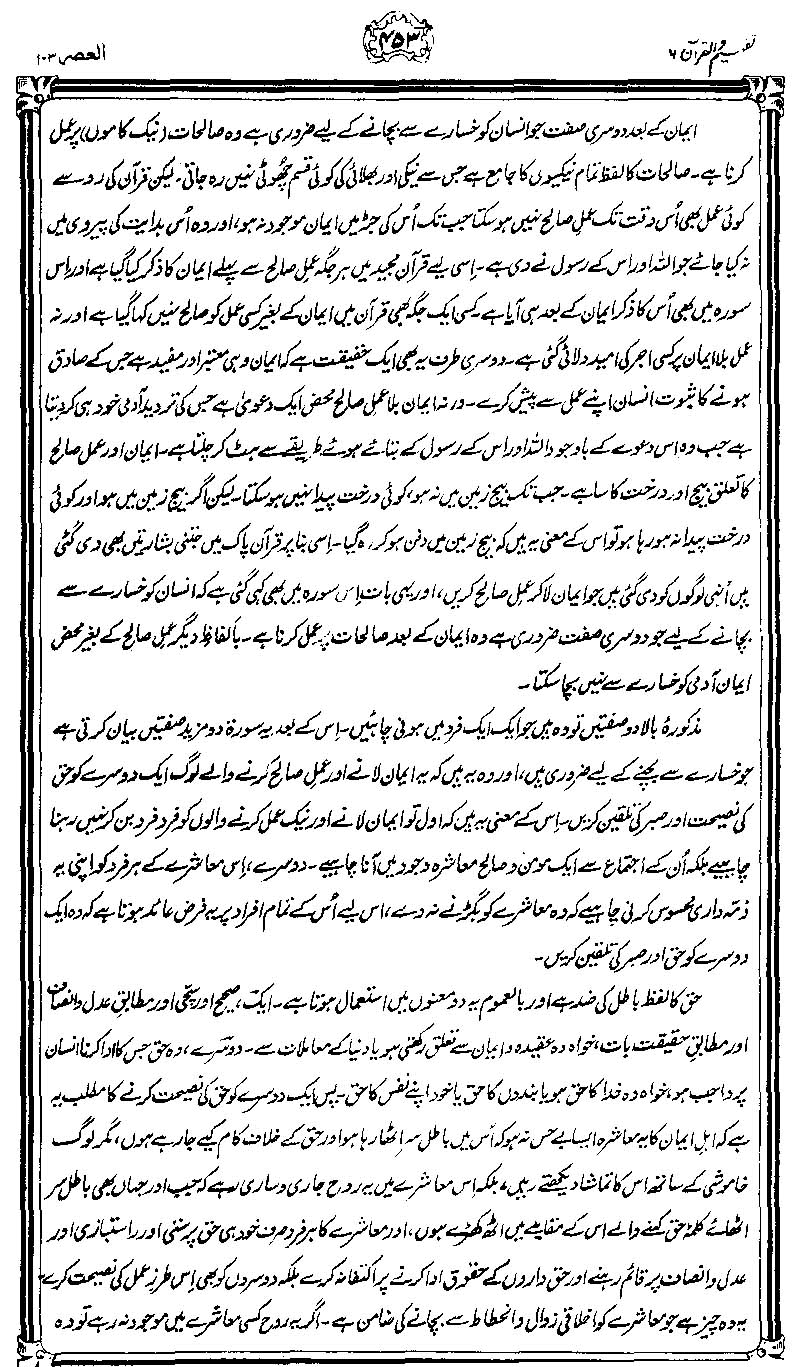 تفہیم القرآن ۶
۴۵۳
العصر ۱۰۳
ایمان کے بعد دوسری صفت جو انسان کو خسارے سے بچانے کے لیے ضروری ہے وہ صالحات (نیک کاموں) پر عمل
کرنا ہے۔ صالحات کا لفظ تمام نیکیوں کا جامع ہے جس سے نیکی اور بھلائی کی کوئی قسم چھُوٹی نہیں رہ جاتی۔ لیکن قرآن کی رو سے
کوئی عمل بھی اُس وقت تک عملِ صالح نہیں ہو سکتا جب تک اُس کی جڑ میں ایمان موجود نہ ہو، اور وہ اُس ہدایت کی پیروی میں
نہ کیا جائے جو اللہ اور اس کے رسول نے دی ہے۔ اِسی لیے قرآن مجید میں ہر جگہ عملِ صالح سے پہلے ایمان کا ذکر کیا گیا ہے اور اِس
سورہ میں بھی اُس کا ذکر ایمان کے بعد ہی آیا ہے۔ کسی ایک جگہ بھی قرآن میں ایمان کے بغیر کسی عمل کو صالح نہیں کہا گیا ہے اور نہ
عمل بلا ایمان پر کسی اجر کی امید دلائی گئی ہے۔ دوسری طرف یہ بھی ایک حقیقت ہے کہ ایمان وہی معتبر اور مفید ہے جس کے صادق
ہونے کا ثبوت انسان اپنے عمل سے پیش کرے۔ ورنہ ایمان بلا عملِ صالح محض ایک دعویٰ ہے جس کی تردید آدمی خود ہی کر دیتا
ہے جب وہ اس دعوے کے باوجود اللہ اور اس کے رسول کے بتائے ہوئے طریقے سے ہٹ کر چلتا ہے۔ ایمان اور عمل صالح
کا تعلق بیج اور درخت کا سا ہے۔ جب تک بیج زمین میں نہ ہو، کوئی درخت پیدا نہیں ہو سکتا۔ لیکن اگر بیج زمین میں ہو اور کوئی
درخت پیدا نہ ہو رہا ہو تو اس کے معنی یہ ہیں کہ بیج زمین میں دفن ہو کر رہ گیا۔ اِسی بنا پر قرآن پاک میں جتنی بشارتیں بھی دی گئی
ہیں اُنہی لوگوں کو دی گئی ہیں جو ایمان لا کر عملِ صالح کریں، اور یہی بات اِس سورہ میں بھی کہی گئی ہے کہ انسان کو خسارے سے
بچانے کے لیے جو دوسری صفت ضروری ہے وہ ایمان کے بعد صالحات پر عمل کرنا ہے۔ بالفاظِ دیگر عمل صالح کے بغیر محض
ایمان آدمی کو خسارے سے نہیں بچا سکتا۔
مذکورۂ بالا دو صفتیں تو وہ ہیں جو ایک ایک فرد میں ہونی چاہئیں۔ اِس کے بعد یہ سورۃ دو مزید صفتیں بیان کرتی ہے
جو خسارے سے بچنے کے لیے ضروری ہیں، اور وہ یہ ہیں کہ یہ ایمان لانے اور عملِ صالح کرنے والے لوگ ایک دوسرے کو حق
کی نصیحت اور صبر کی تلقین کریں۔ اِس کے معنی یہ ہیں کہ اول تو ایمان لانے اور نیک عمل کرنے والوں کو فرد فرد بن کر نہیں رہنا
چاہیے بلکہ اُن کے اجتماع سے ایک مومن و صالح معاشرہ وجود میں آنا چاہیے۔ دوسرے، اِس معاشرے کے ہر فرد کو اپنی یہ
ذمہ داری محسوس کرنی چاہیے کہ وہ معاشرے کو بگڑنے نہ دے، اس لیے اُس کے تمام افراد پر یہ فرض عائد ہوتا ہے کہ وہ ایک
دوسرے کو حق اور صبر کی تلقین کریں۔
حق کا لفظ باطل کی ضد ہے اور بالعموم یہ دو معنوں میں استعمال ہوتا ہے۔ ایک، صحیح اور سچی اور مطابق عدل و انصاف
اور مطابقِ حقیقت بات، خواہ وہ عقیدہ و ایمان سے تعلق رکھتی ہو یا دنیا کے معاملات سے۔ دوسرے، وہ حق جس کا ادا کرنا انسان
پر واجب ہو، خواہ وہ خدا کا حق ہو یا بندوں کا حق یا خود اپنے نفس کا حق۔ پس ایک دوسرے کو حق کی نصیحت کرنے کا مطلب یہ
ہے کہ اہل ایمان کا یہ معاشرہ ایسا بے حس نہ ہو کہ اُس میں باطل سر اٹھا رہا ہو اور حق کے خلاف کام کیے جا رہے ہوں، مگر لوگ
خاموشی کے ساتھ اس کا تماشا دیکھتے رہیں، بلکہ اِس معاشرے میں یہ روح جاری و ساری رہے کہ جب اور جہاں بھی باطل سر
اٹھائے کلمۂ حق کہنے والے اس کے مقابلے میں اٹھ کھڑے ہوں، اور معاشرے کا ہر فرد صرف خود ہی حق پرستی اور راستبازی اور
عدل و انصاف پر قائم رہنے اور حق داروں کے حقوق ادا کرنے پر اکتفا نہ کرے بلکہ دوسروں کو بھی اِس طرزِ عمل کی نصیحت کرے۔
یہ وہ چیز ہے جو معاشرے کو اخلاقی زوال و انحطاط سے بچانے کی ضامن ہے۔ اگر یہ روح کسی معاشرے میں موجود نہ رہے تو وہ